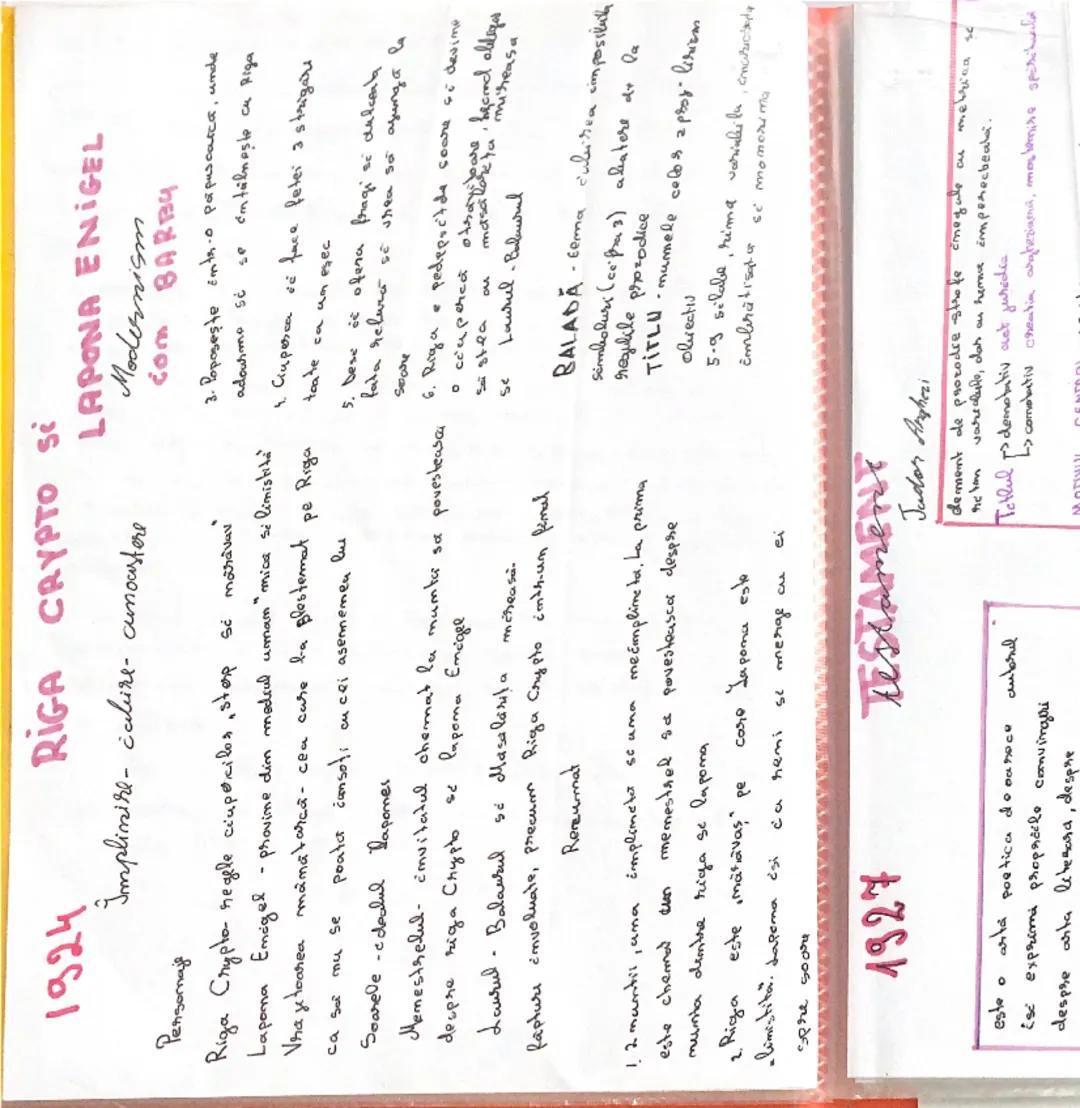 1924 RIGA CRYPTO și
LAPONA ENIGEL
Împlinire - iubire - cunoaștere
Modernism
ion BARBU
Personaje
Riga Crypto - regele ciupercilor, sterp și mărăvav"
Lapona Enigel - provine din mediul uman "mică și liniștită"
Vrăjitoarea mânătarcă - cea care l-a blestemat pe Riga
ca să nu se poată însoți cu cei asemenea lui
Soarele - idealul Laponei
Menestrelul - invitatul chemat la nuntă să povestească
despre riga Crypto și lapona Enigel
Laurul - Balaurul și Măsălărița mireasă.
făpturi involuate, precum Riga Crypto într-un final
Rezumat
1. 2 nunți, una împlinită și una neîmplinită. La prima
este chemat un menestrel să povestească despre
nunta dintre riga și lapona
2. Riga este „mărăvav," pe care Lapona este
„liniștită". Lapona își ia renii și merge cu ei
spre soare
3. Poposește într-o păpușoarcă, unde
adoarme și se întâlnește cu Riga
4. Ciuperca îi face fetei 3 strigări
toate ca un eșec
5. Deși îi oferă fragi și dulceață
fata refuză și vrea să ajungă la
soare
6. Riga e pedepsit de soare și devine
o ciupercă otrăvitoare, fiind obligat
să stea cu măsălărița mireasa
și Laurul - Balaurul
BALADĂ - tema iubirea imposibilă
simboluri (cifra 3) abatere de la
regulile prozodice
TITLU - numele celor 2 prot. lirism
obiectiv
5-9 silabe, rima variabilă, încrucișată
îmbrățișată și monorima
1927 TESTAMENT
testament
Tudor Arghezi
este o artă poetică deoarece autorul
își exprimă propriile convingeri
despre arta literară, despre
element de prozodie strofe inegale cu metrica și
ritm variabile, dar cu rima împerecheată.
Titlul ↳ denotativ act juridic
↳ conotativ creația argheziană, moștenire spirituală